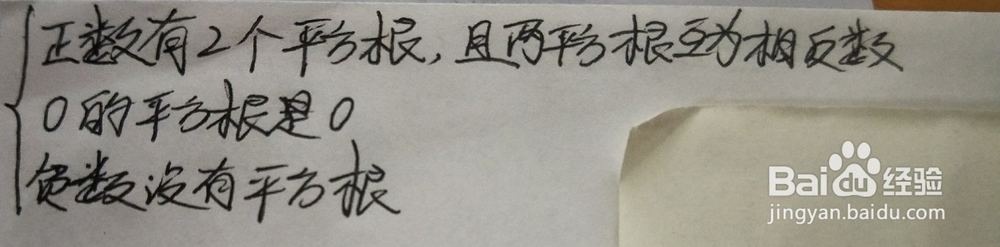 正数有2个平方根,且两平方根互为相反数
0的平方根是0
负数没有平方根
Baidu经验
jingyan.baidu.com